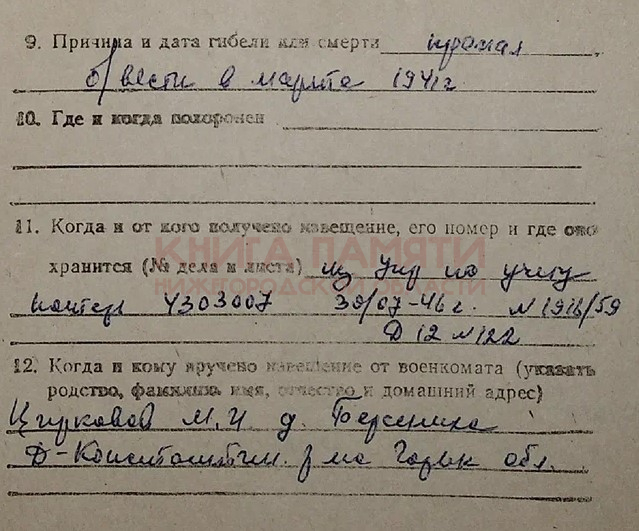 9. Причина и дата гибели или смерти пропал
б/вести в марте 1941 г.
10. Где и когда похоронен
11. Когда и от кого получено извещение, его номер и где оно
КНИГА ПАМЯТИ
хранится (№ дела и листа) из Упр по учету
НИЖЕГОРОДСКОЙ ОБЛАСТИ
потерь 4303007 30/07-46 г. N 1916/59
Д 12 N 122
12. Когда и кому вручено извещение от военкомата (указать
родство, фамилию, имя, отчество и домашний адрес)
Цирковой М. И д.
Д-Константин. р-на Горьк обл.